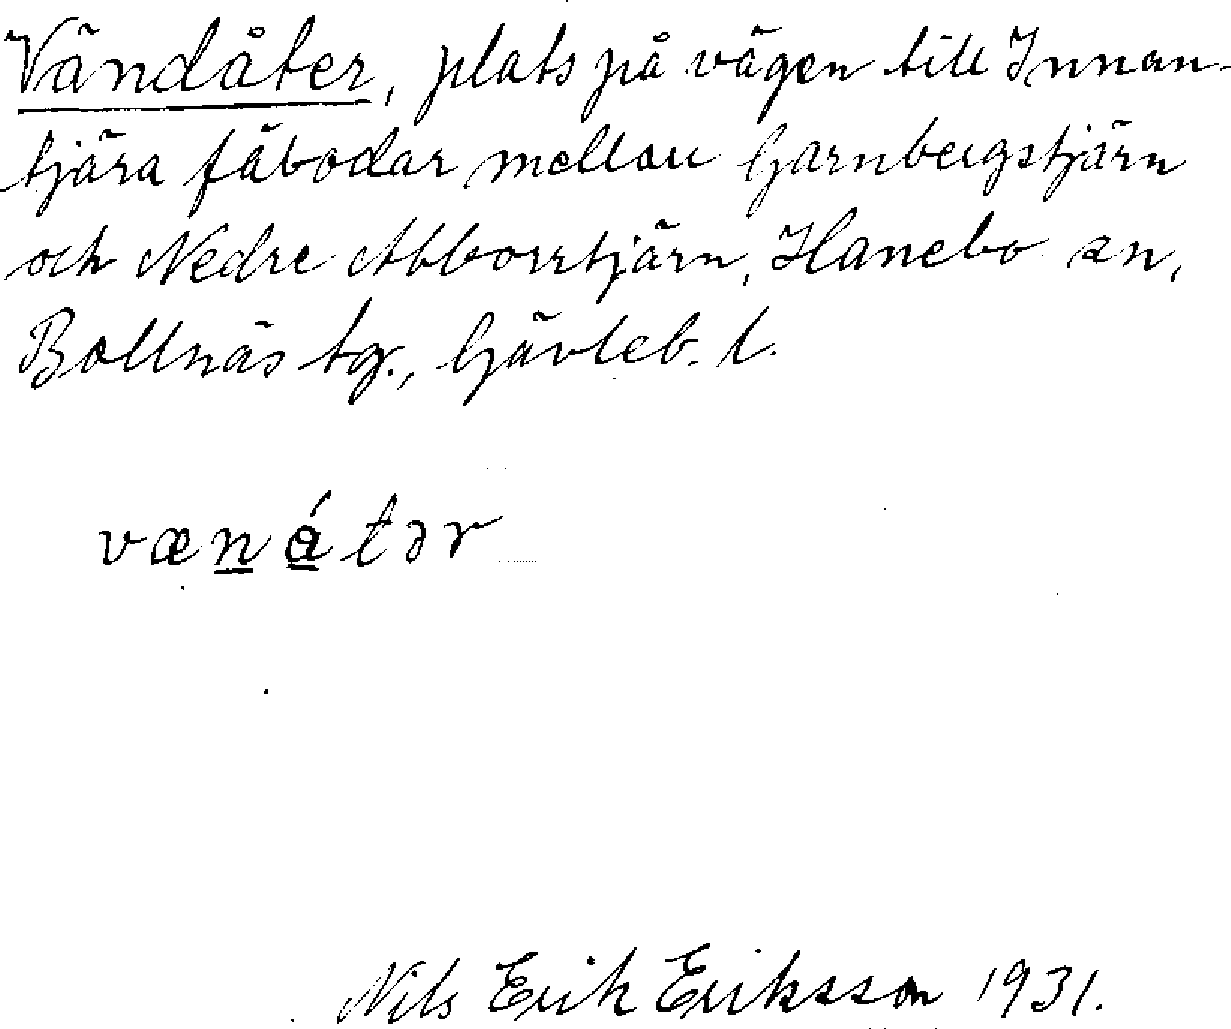 Vändåter, plats på vägen till Innan-
tjära fäbodar mellan Garnbergstjärn
och Nedre Abborrtjärn, Hanebo sn,
Bollnäs tg., Gävleb. l.
vænátər
Nils Erik Eriksson 1931.